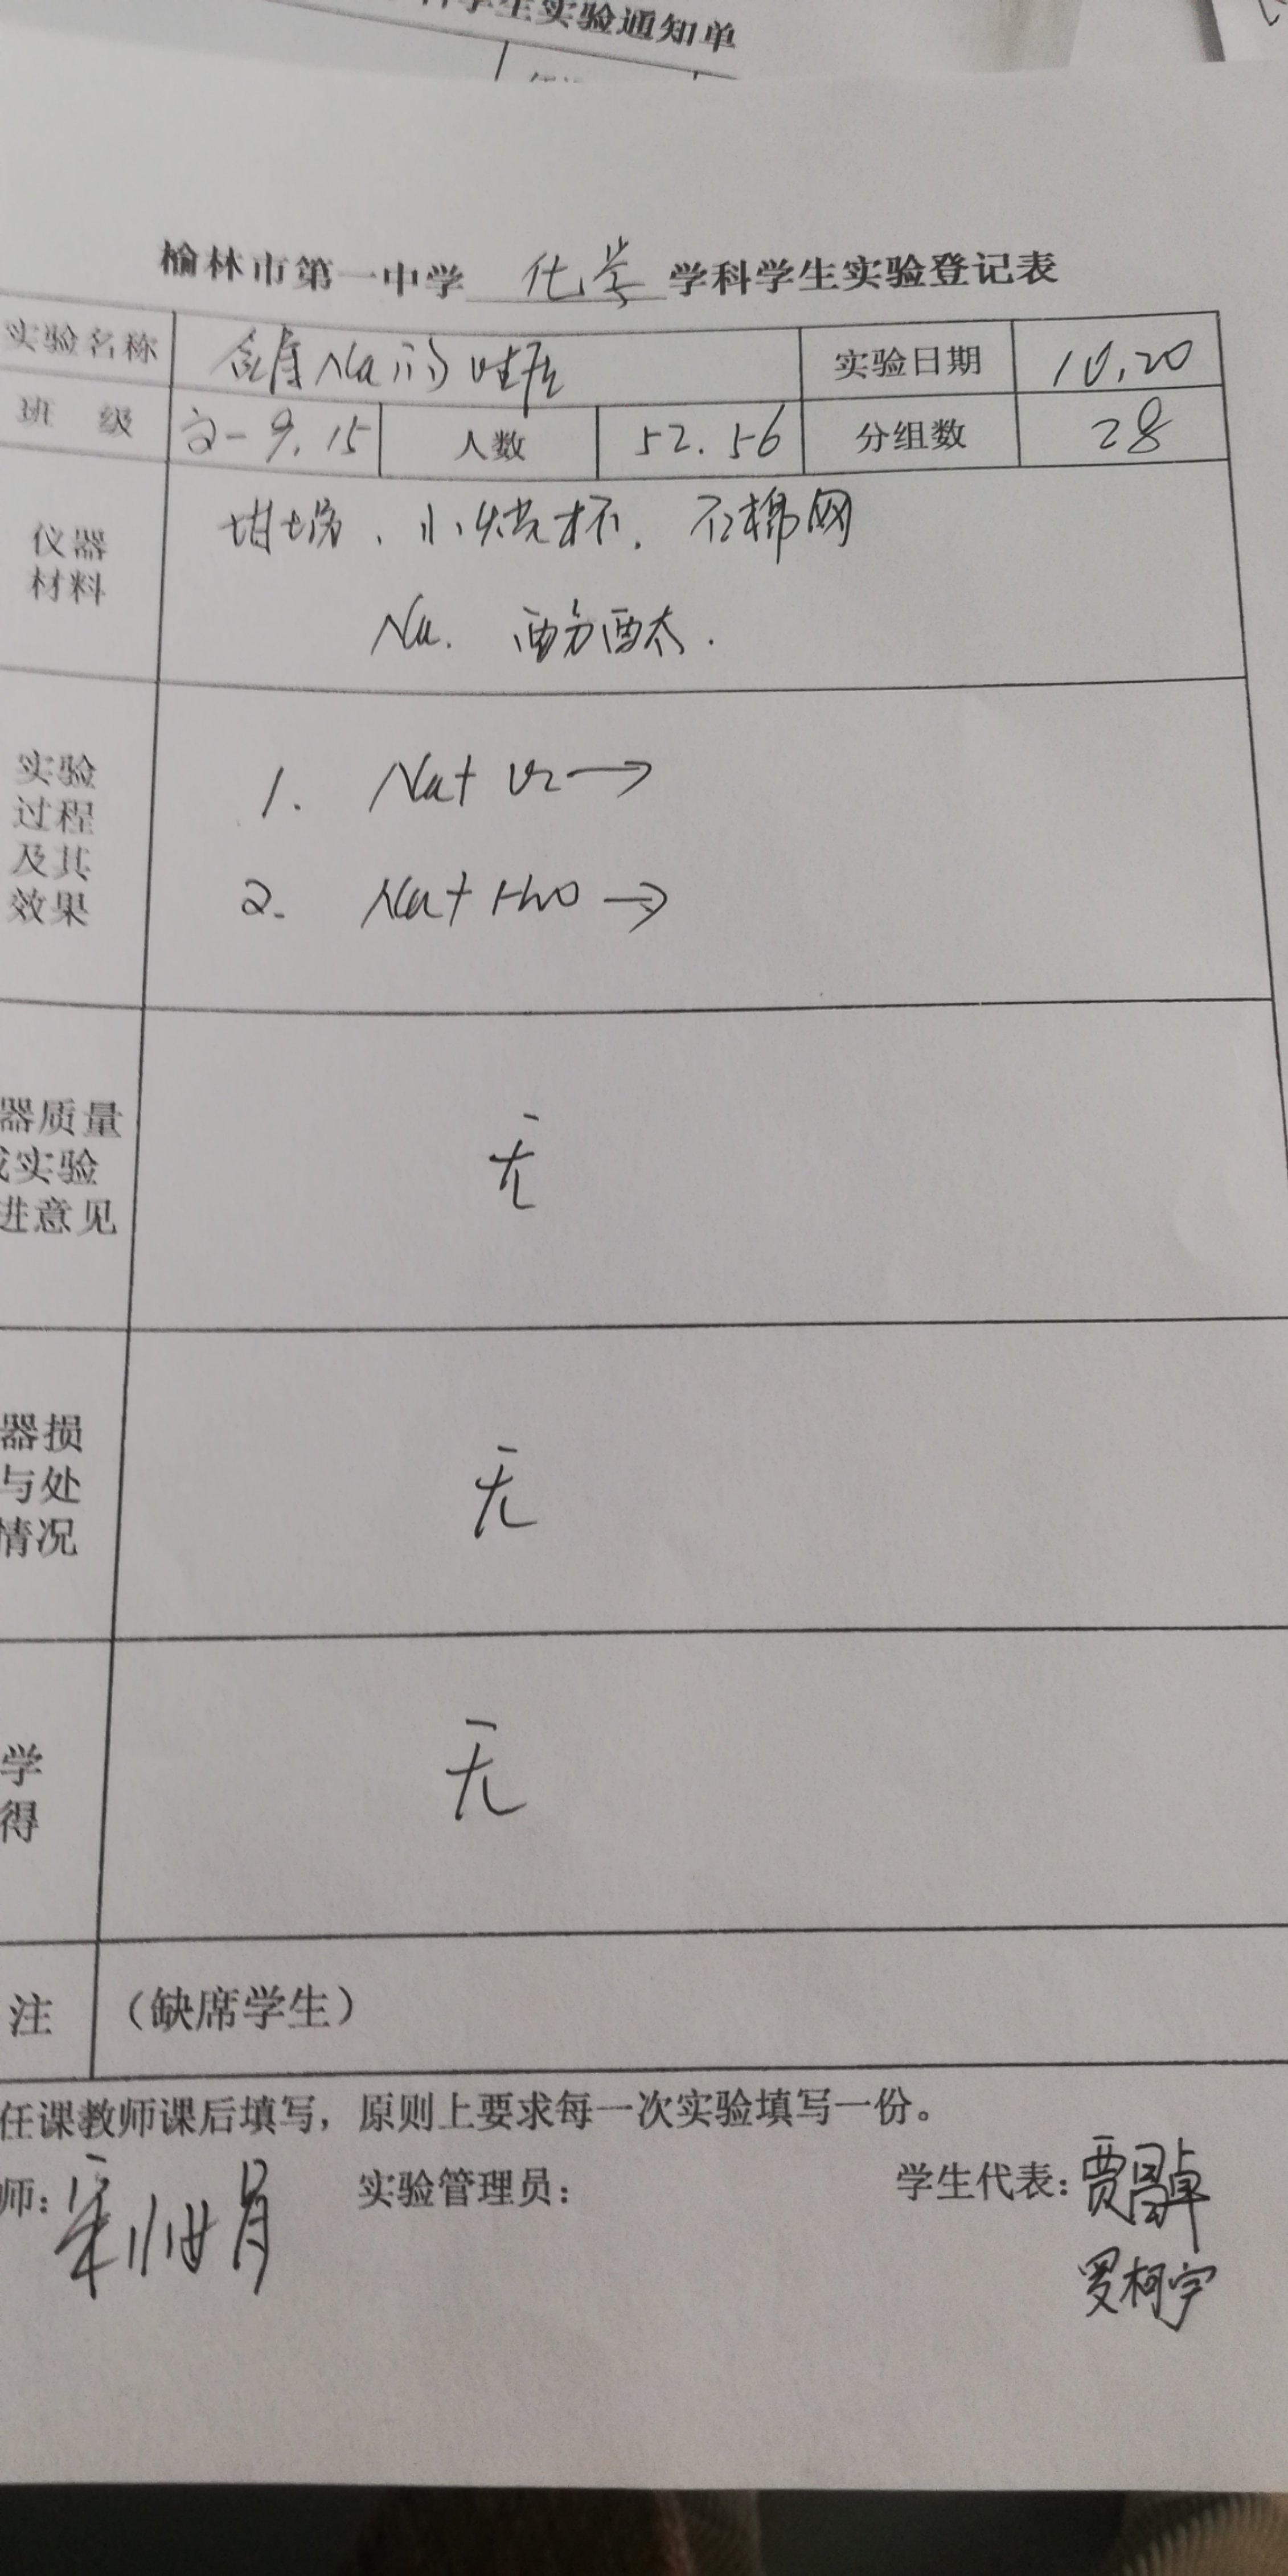 学生实验通知单
榆林市第一中学 化学 学科学生实验登记表
实验名称 金属Na的性质 实验日期 10.20
班 级 高一 9.15 人数 52.56 分组数 28
仪器
材料
坩埚、小烧杯.石棉网
Na. 酚酞.
实验
过程
及其
效果
1. Na+O2→
2. Na+H2O→
器质量
或实验
进意见
无
器损
与处
情况
无
学
得
无
注 (缺席学生)
任课教师课后填写，原则上要求每一次实验填写一份。
师: 实验管理员: 学生代表:
罗柯宇